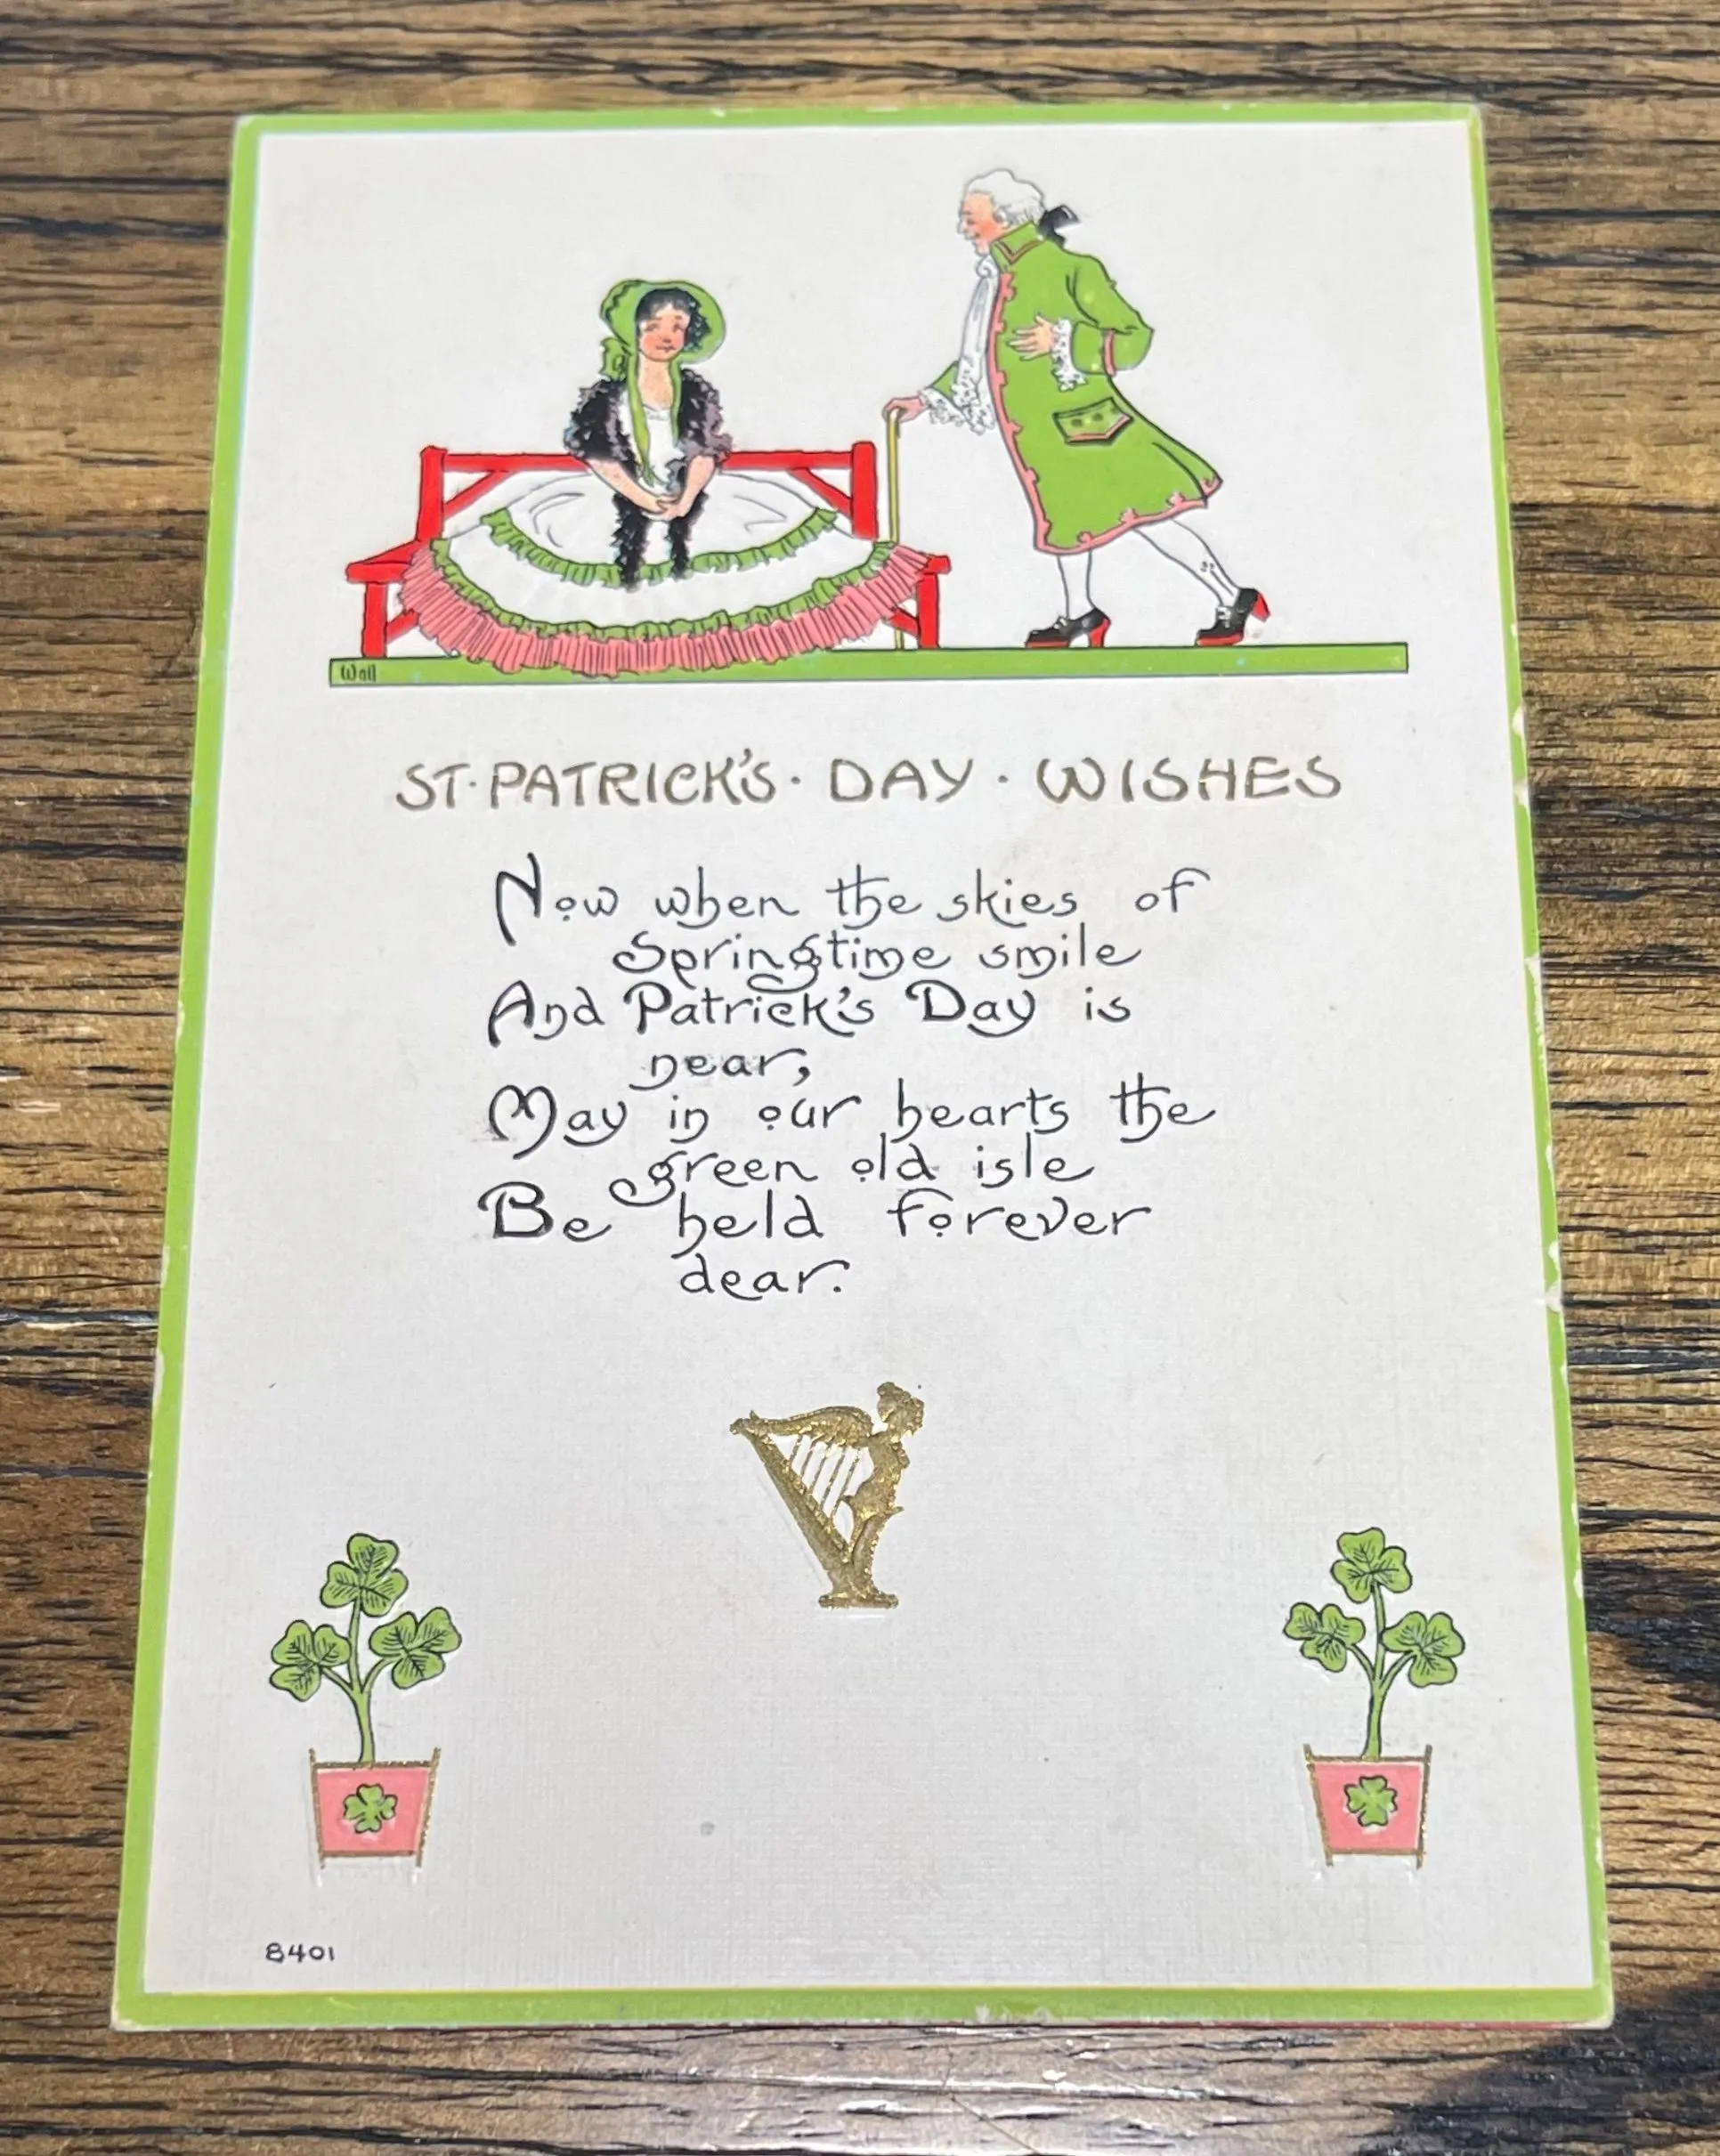 Wall
ST·PATRICK'S·DAY·WISHES
Now when the skies of
Springtime smile
And Patrick's Day is
near,
May in our hearts the
green old isle
Be held forever
dear.
8401